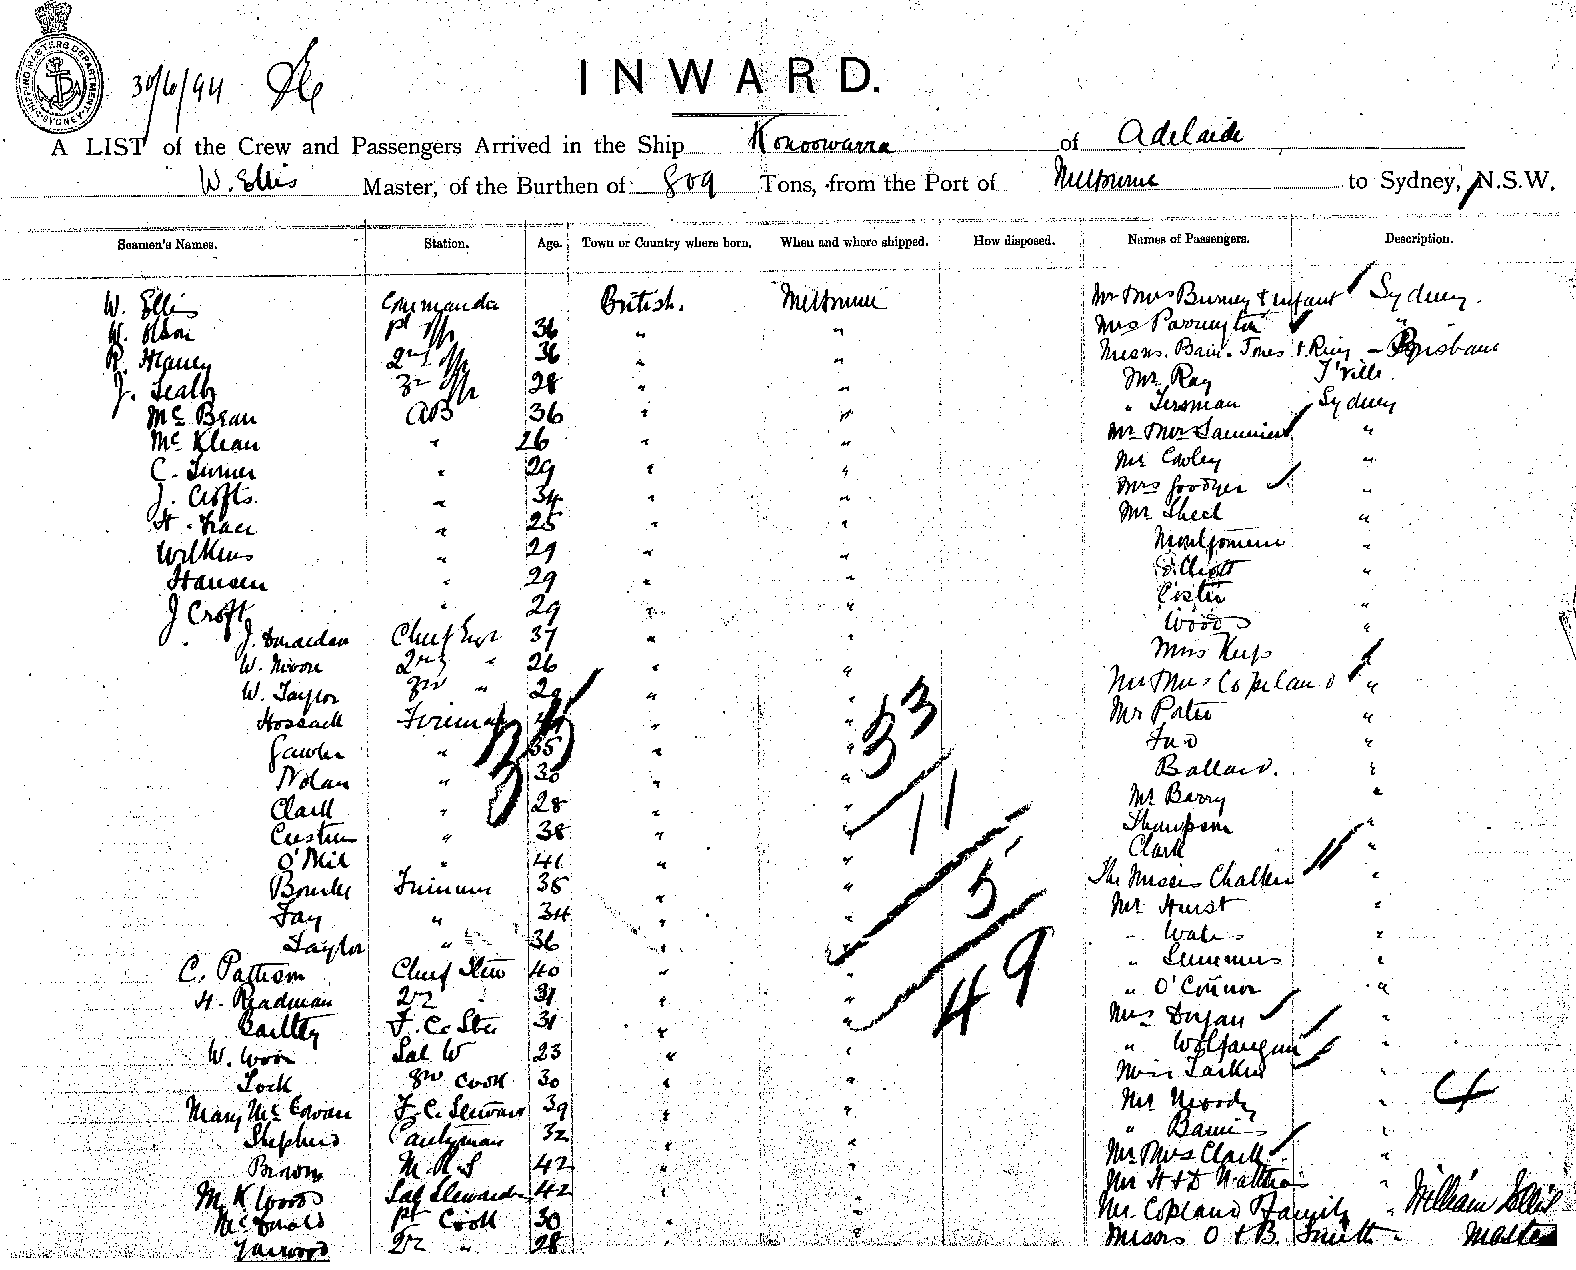 SHIPPING MASTERS DEPARTMENT SYDNEY
30/6/94
INWARD.
A LIST of the Crew and Passengers Arrived in the Ship Konoowarra of Adelaide
W. Ellis Master, of the Burthen of 809 Tons, from the Port of Melbourne to Sydney, N.S.W.
Seamen's Names. Station. Age. Town or Country where born. When and where shipped. How disposed. Names of Passengers. Description.
W. Ellis Commander British. Melbourne Mr & Mrs Burney & infant Sydney.
W. Olson 1st Offr 36 " " Mrs Parrington "
R. Haney 2nd Offr 36 " " Messrs. Bain. Jones & King - Brisbane
J. Sealby 3rd Offr 28 " " Mr Ray T'ville
McBean AB 36 " " " Tersman Sydney
McKlean " 26 " " Mr & Mrs Summers "
C. Turner " 29 " " Mr Cawley "
J. Crofts. " 34 " " Mrs Goodyer "
H. " 25 " " Mr Shed "
Wilkins " 29 " " Montgomerie "
Hansen " 29 " " Elliott "
J Croft " 29 " " "
J. Dearden Chief Engr 37 " " Woods "
W. Nixon 2nd " 26 " " Miss Keys
W. Taylor 3rd " 29 " " Mr & Mrs Copeland "
Hossack Fireman " " Mr Porter "
Gawler " 35 " " "
33
Nolan " 30 " " Ballard. "
Clark " 28 " " Mr Barry "
11
" 38 " " Thompson "
O'Neil " 41 " " Clark "
Bourke Trimmer 35 " " The Misses Chalker "
5
Fay " 34 " " Mr Hurst "
Taylor " 36 " " " Wales "
C. Pattison Chief Stew 40 " " " Summers "
49
H. Readman 2nd " 31 " " " O'Connor "
Bailley F. C. Stew 31 " " Mrs Dugan "
W. Woon Sal W 23 " " " Wolfangen "
Lock 3rd Cook 30 " " Miss Larkin "
Mary McEwan F. C. Stewass 39 " " Mr Moody " 4
Shepherd Pantryman 32 " " " "
Brown M. R. S 42 " " Mr & Mrs Clark "
M. K Wood Sal Stewardess 42 " " Mr H & D "
McDonald 1st Cook 30 " " Mr Copland & Family " William Ellis
Yarwood 2nd " 28 " " Misses O & B. Smith " Master